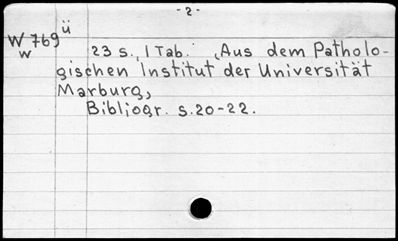 -2-
ü
W 769
w
23 s., 1 Tab. (Aus dem Patholo-
gischen Institut der Universität
Marburg,
Bibliogr. S. 20-22.